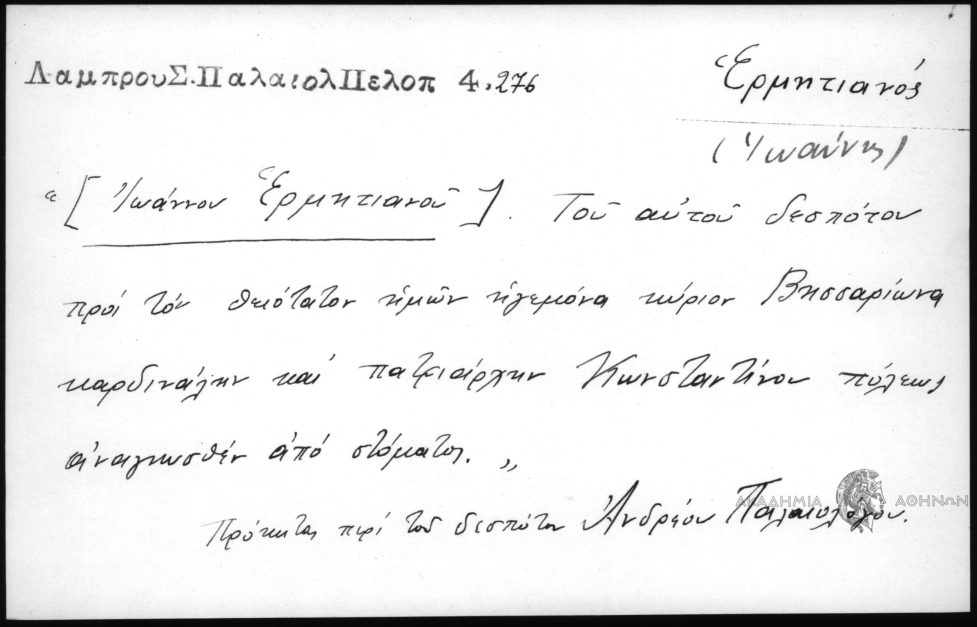 Λαμπρου Σ. Παλαιολ Πελοπ 4, 276
Ἑρμητιανός
(Ἰωάννης)
"[Ἰωάννου Ἑρμητιανοῦ]. Τοῦ αὐτοῦ δεσπότου
πρὸς τὸν θειότατον ἡμῶν ἡγεμόνα κύριον Βησσαρίωνα
καρδινάλην καὶ πατριάρχην Κωνσταντίνου πόλεως
ἀναγνωσθὲν ἀπὸ στόματος."
Πρόκειται περὶ τοῦ δεσπότου Ἀνδρέου Παλαιολόγου.
ΑΚΑΔΗΜΙΑ ΑΘΗΝΩΝ